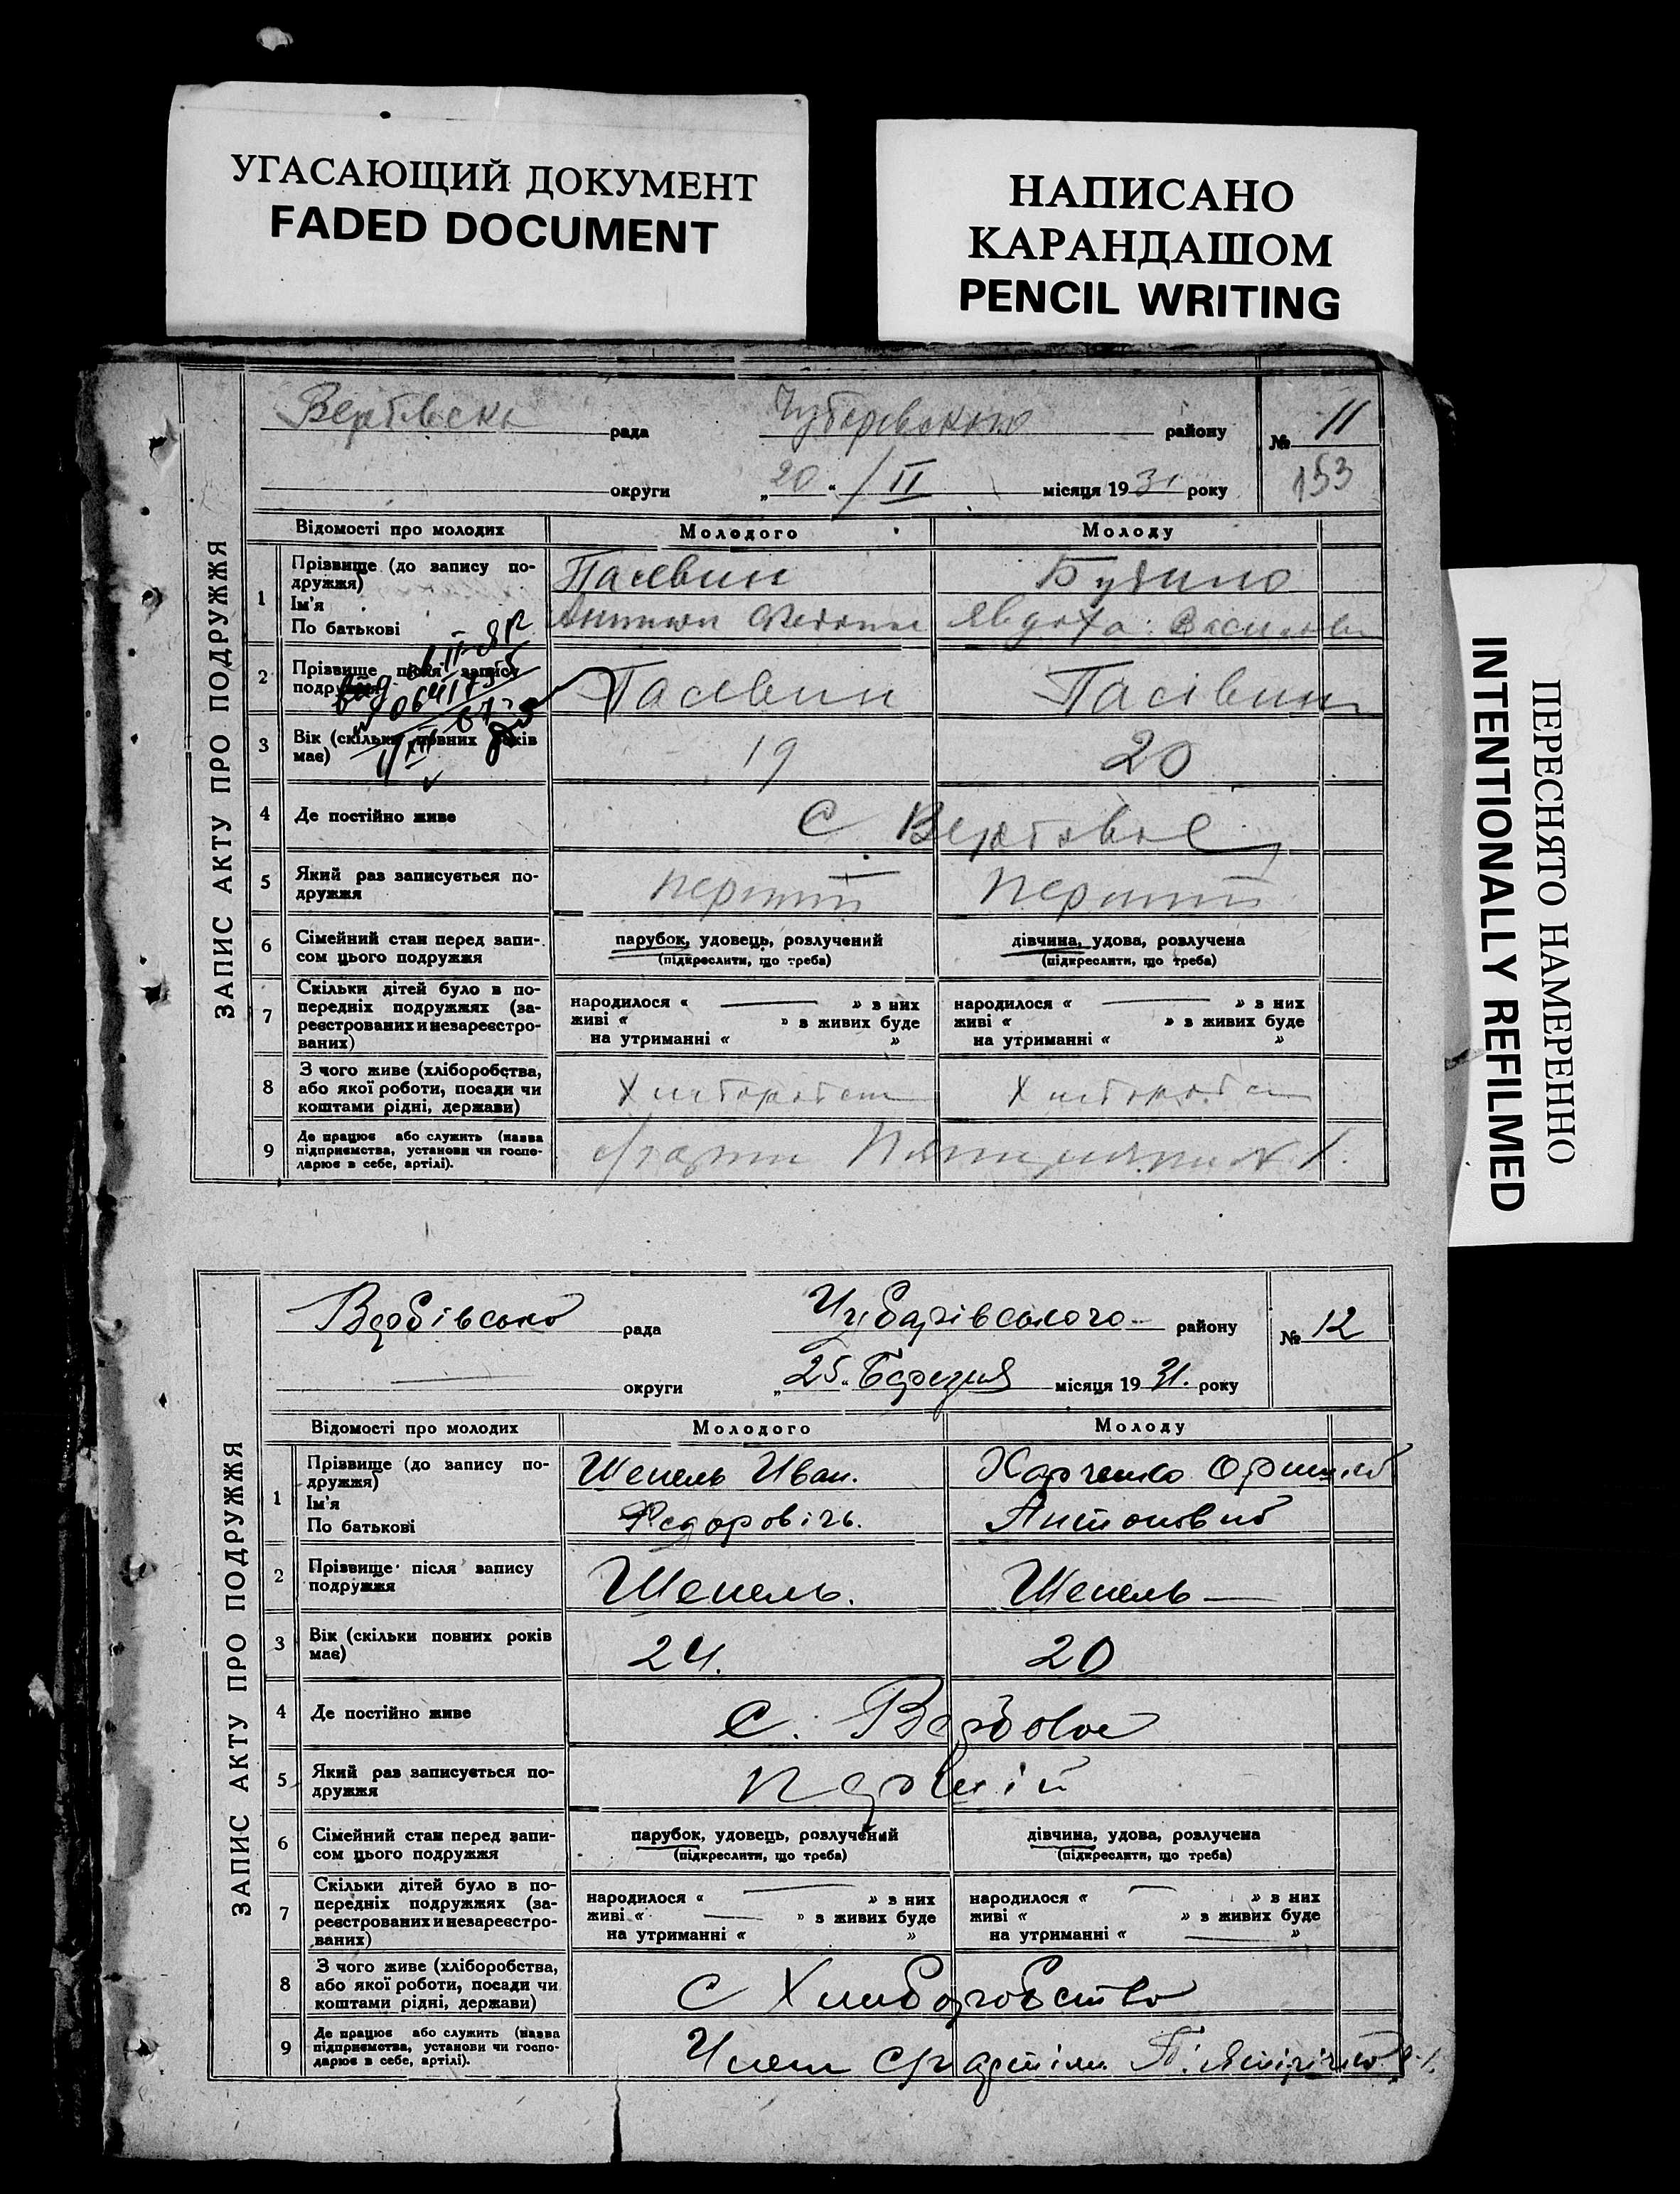 УГАСАЮЩИЙ ДОКУМЕНТ
FADED DOCUMENT
НАПИСАНО
КАРАНДАШОМ
PENCIL WRITING
ПЕРЕСНЯТО НАМЕРЕННО
INTENTIONALLY REFILMED
ЗАПИС АКТУ ПРО ПОДРУЖЖЯ
рада району № 11
округи „20“ / II місяця 1931 року 153
Відомості про молодих Молодого Молоду
1 Прізвище (до запису по-
дружжя)
Ім'я
По батькові
Явдоха
2 Прізвище після запису
подружжя
Пасівин
3 Вік (скільки повних років
має)
19 20
4 Де постійно живе
С
5 Який раз записується по-
дружжя
перший перший
6 Сімейний стан перед запи-
сом цього подружжя
парубок, удовець, розлучений
(підкреслити, що треба)
дівчина, удова, розлучена
(підкреслити, що треба)
7 Скільки дітей було в по-
передніх подружжях (за-
реєстрованих и незареєстро-
ваних)
народилося « — » з них
живі « » з живих буде
на утриманні « »
народилося « — » з них
живі « » з живих буде
на утриманні « »
8 З чого живе (хліборобства,
або якої роботи, посади чи
коштами рідні, держави)
9 Де працює або служить (назва
підприємства, установи чи госпо-
дарює в себе, артілі).
ЗАПИС АКТУ ПРО ПОДРУЖЖЯ
Вербівсько рада Чубарівського району № 12
округи „25“ Березня місяця 1931. року
Відомості про молодих Молодого Молоду
1 Прізвище (до запису по-
дружжя)
Ім'я
По батькові
Шепель Иван. Харченко
Федоровічь.
2 Прізвище після запису
подружжя
Шепель. Шепель —
3 Вік (скільки повних років
має)
24. 20
4 Де постійно живе
С. Вербове
5 Який раз записується по-
дружжя
першій
6 Сімейний стан перед запи-
сом цього подружжя
парубок, удовець, розлучений
(підкреслити, що треба)
дівчина, удова, розлучена
(підкреслити, що треба)
7 Скільки дітей було в по-
передніх подружжях (за-
реєстрованих и незареєстро-
ваних)
народилося « — » з них
живі « — » з живих буде
на утриманні « »
народилося « — » з них
живі « » з живих буде
на утриманні « — »
8 З чого живе (хліборобства,
або якої роботи, посади чи
коштами рідні, держави)
С Хлиборобство
9 Де працює або служить (назва
підприємства, установи чи госпо-
дарює в себе, артілі).
Член